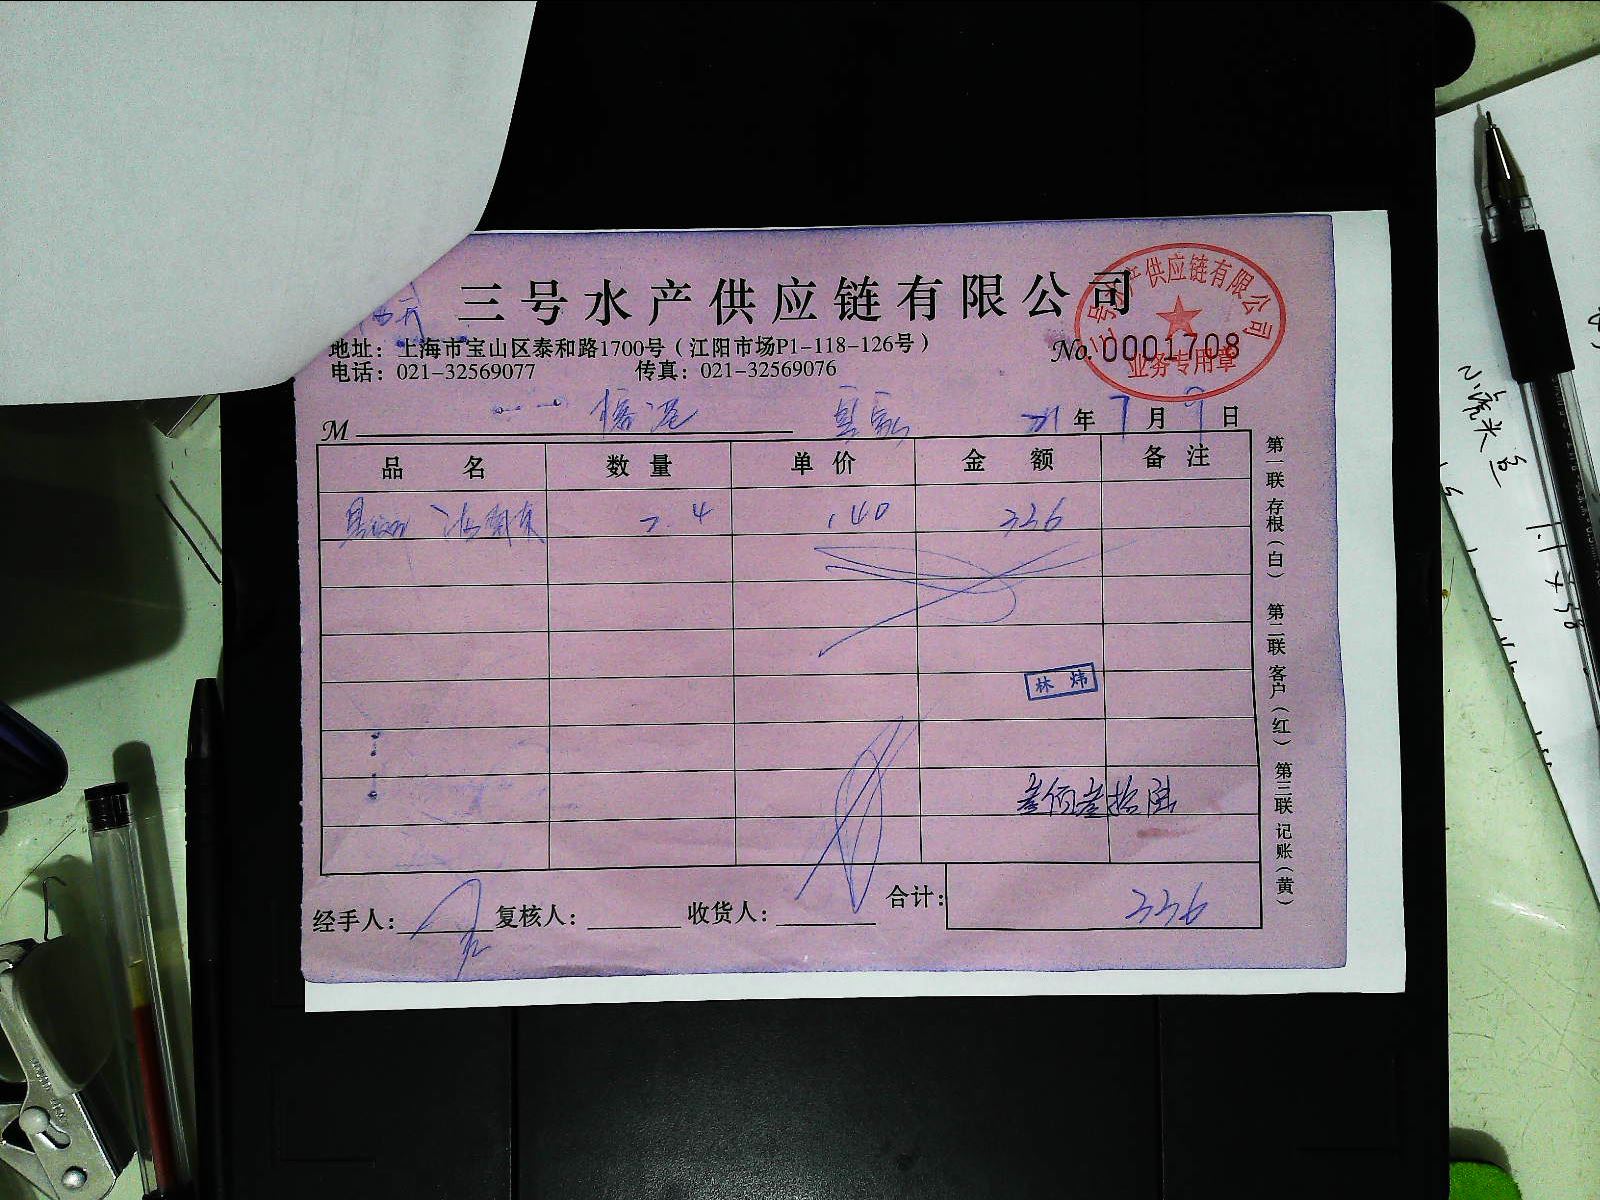 三号水产供应链有限公司
地址：上海市宝山区泰和路1700号（江阳市场P1-118-126号）
电话：021-32569077 传真：021-32569076
No. 0001708
三号水产供应链有限公司
业务专用章
M 年 7 月 9 日
品 名 数 量 单 价 金 额 备 注
2.4 140 336
林 炜
叁佰叁拾陆
经手人： 复核人： 收货人： 合计： 336
第一联 存根（白） 第二联 客户（红） 第三联 记账（黄）
小虎头
1.1 x 58